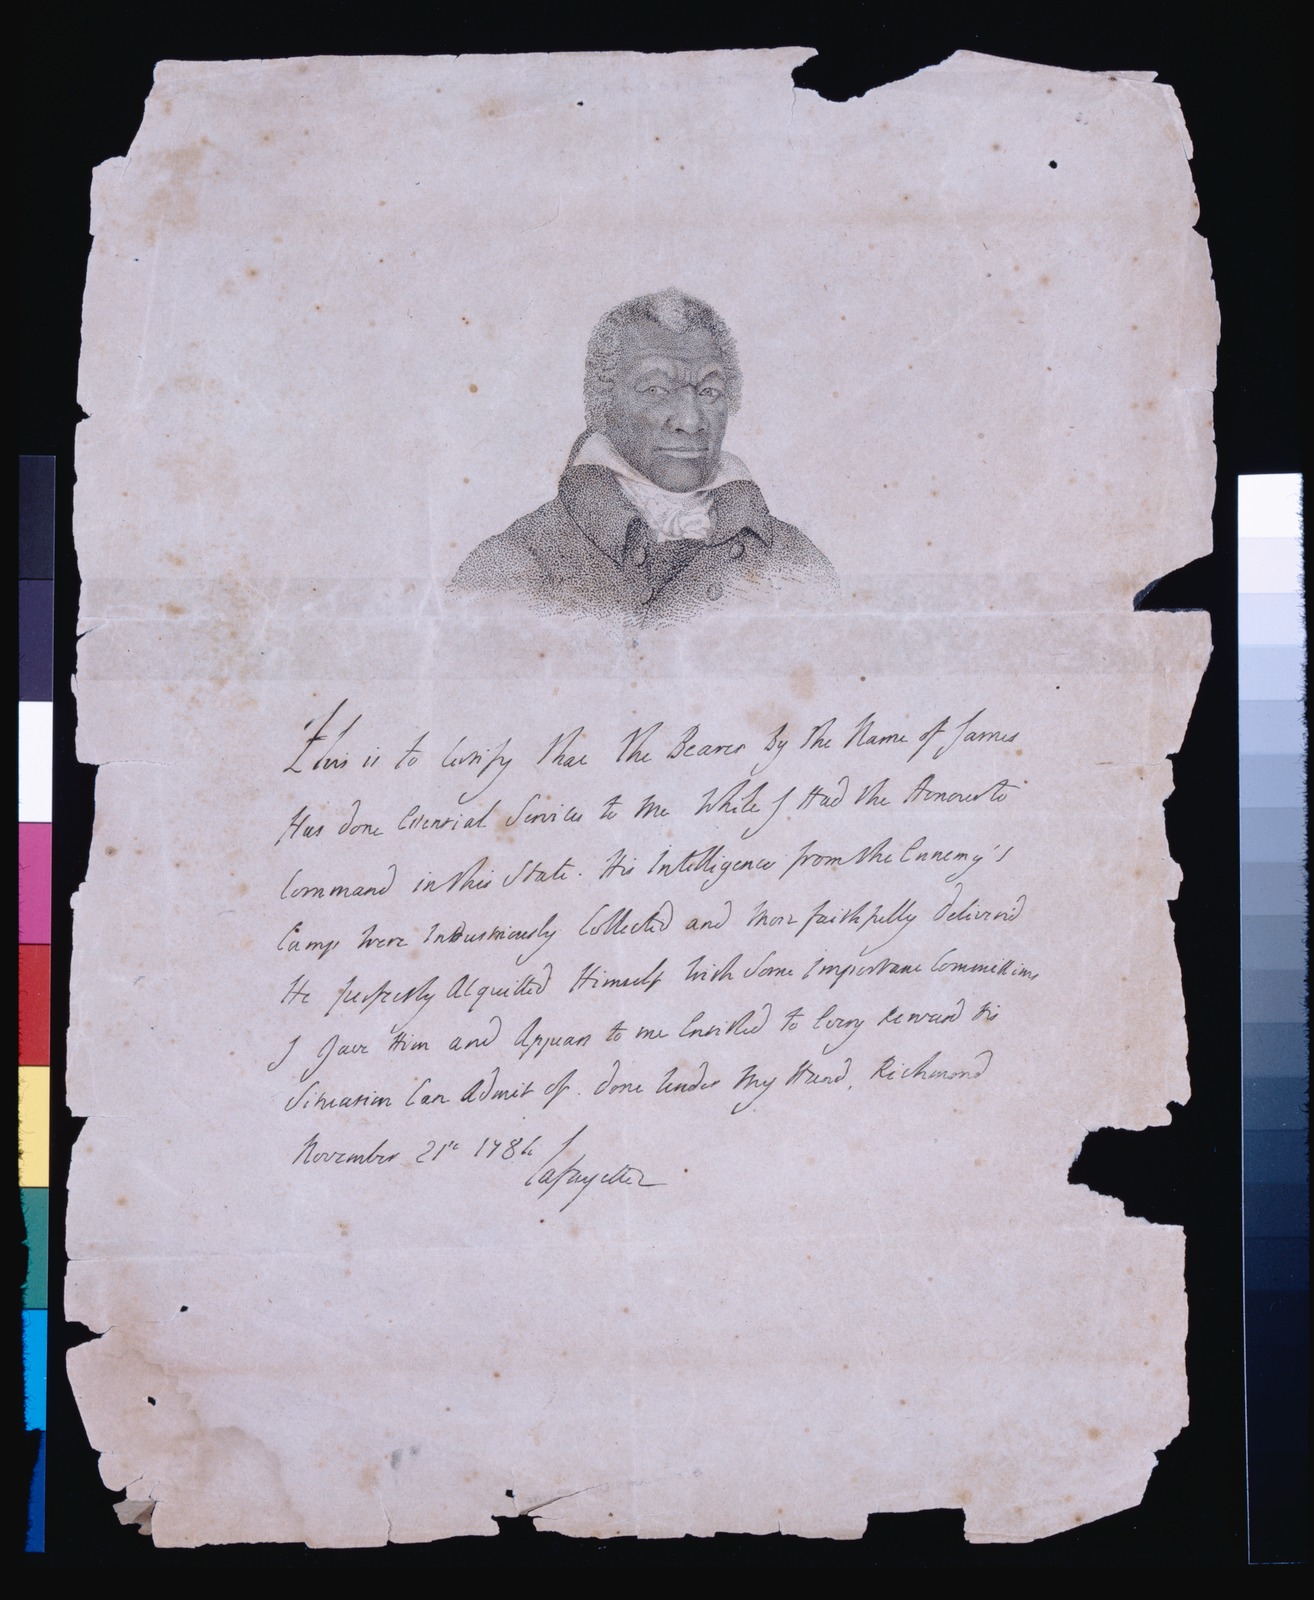 This is to Certify that the Bearer By the Name of James
Has done Essential Services to Me While I Had the Honour to
Command in this State. His Intelligence from the Ennemy's
Camp were Industriously Collected and More faithfully deliver'd
He perfectly Acquitted Himself with Some Important Commissions
I Gave Him and Appears to me Entitled to Every Reward his
Situation Can Admit of. Done Under My Hand, Richmond
November 21st 1784
Lafayette